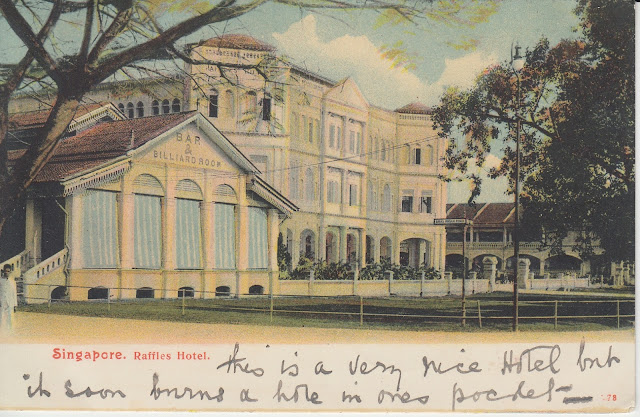 BAR
&
BILLIARD ROOM
Singapore. Raffles Hotel.
this is a very nice Hotel but
it soon burns a hole in ones pocket
78